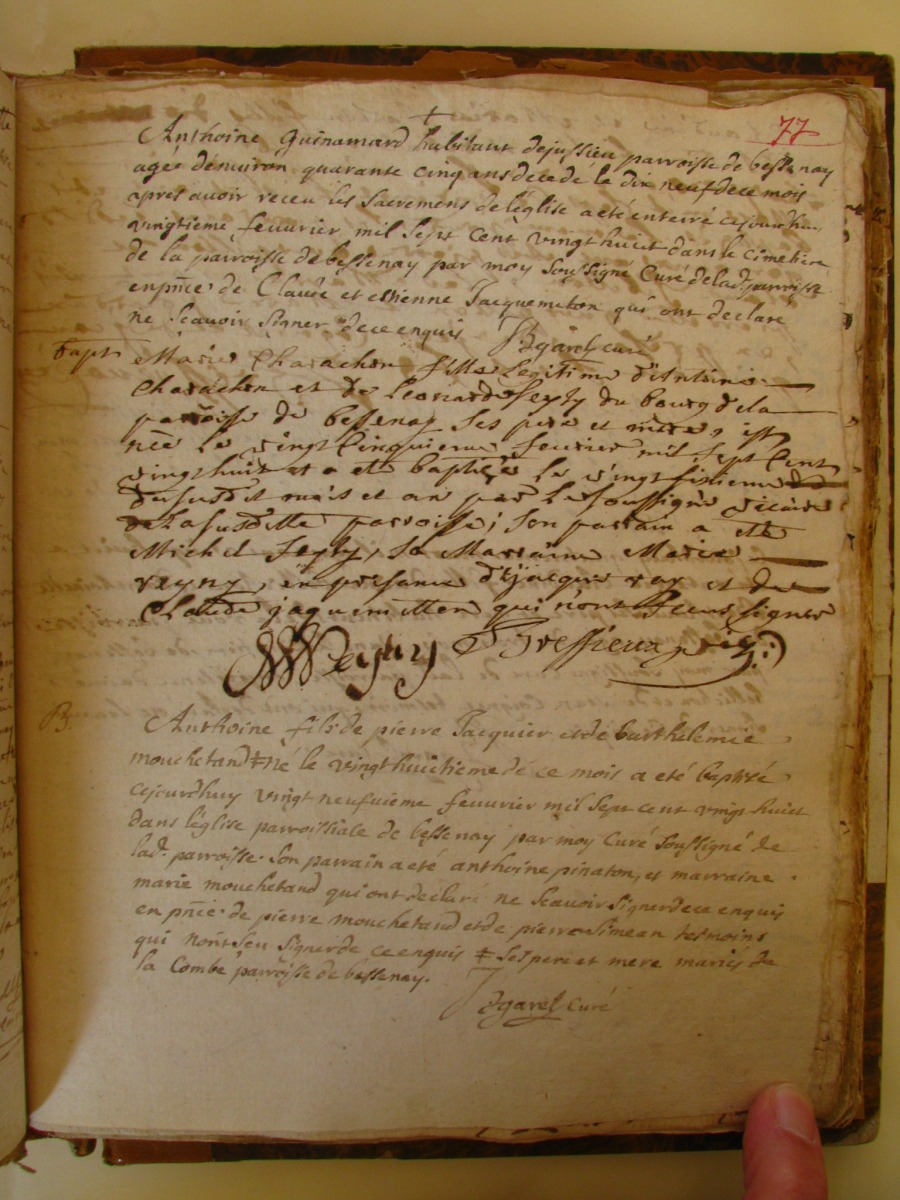 77
Anthoine Guinamard habitant de jussieu parroisse de bessenay
agée denuiron quarante cinq ans decede le dix neuf de ce mois
apres auoir receu les Sacremens de léglise a eté enterré cejourdhuy
vingtieme feuurier mil sept cent vingt huict dans le cimetiere
de la parroisse de bessenay par moy soussigné Curé de lad. parroisse
en pñce de Claude et estienne Jacquemeton qui ont declaré
ne scauoir signer de ce enquis curé
Bapt Marie Charachon fille legitime d'Antoine
Charachon et de Leonarde Seyty du bourg de la
paroisse de bessenay ses pere et mere, est
née le vingt cinquieme feurier mil sept cent
vingt huit et a eté baptisée le vingt sixieme
du susdit mois et an par le soussigné vicaire
de la susditte parroisse; son parrain a eté
Michel Seyty, sa Marraine Marie
veyny, en presance de jacque ray et de
Claude jaquemetton qui n'ont sceus signer
Bressieux vic.
B. Anthoine fils de pierre Jacquier et de barthelemie
mouchetand ‡ né le vingt huitieme de ce mois a eté baptisé
cejourdhuy vingt neufuieme feuurier mil sept cent vingt huict
dans léglise parroissiale de bessenay par moy Curé soussigné de
lad. parroisse. Son parrain a eté anthoine pinaton, et marraine
marie mouchetand qui ont declaré ne scauoir signer de ce enquis
en pñce de pierre mouchetand et de pierre Simean tesmoins
qui nont seu signer de ce enquis ‡ ses pere et mere mariés de
la Combe parroisse de bessenay.
curé